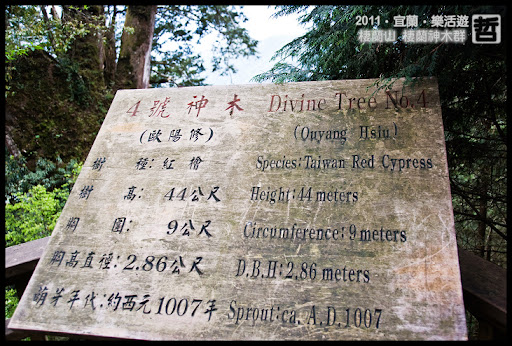 2011·宜蘭·樂活遊
棲蘭山 棲蘭神木群
哲
4號神木 Divine Tree No.4
(歐陽修) (Ouyang Hsiu)
樹 種:紅檜 Species:Taiwan Red Cypress
樹 高: 44公尺 Height:44 meters
胸 圍: 9公尺 Circumference:9 meters
胸高直徑:2.86公尺 D.B.H:2.86 meters
萌芽年代:約西元1007年 Sprout:ca. A.D.1007